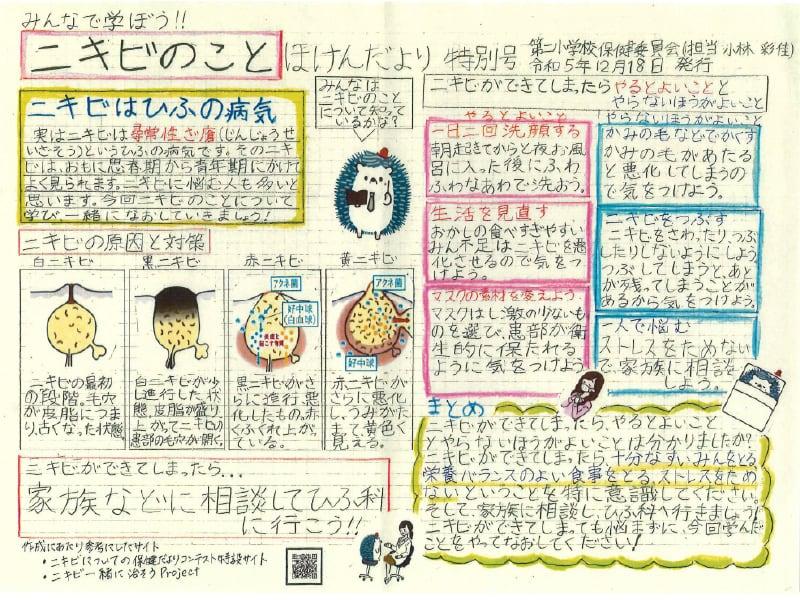 みんなで学ぼう!!
ニキビのこと ほけんだより 特別号
第二小学校保健委員会(担当 小林 彩佳)
令和5年12月18日 発行
ニキビはひふの病気
実はニキビは尋常性ざ瘡(じんじょうせ
いざそう)というひふの病気です。そのニキ
ビは、おもに思春期から青年期にかけて
よく見られます。ニキビに悩む人も多いと
思います。今回ニキビのことについて
学び、一緒になおしていきましょう!
みんなは
ニキビのこと
について知って
いるかな?
ニキビの原因と対策
白ニキビ
ニキビの最初
の段階。毛穴
が皮脂につま
り、古くなった状態。
黒ニキビ
白ニキビが少
し進行した状
態。皮脂が盛り
上がってニキビの
患部の毛穴が開く。
赤ニキビ
アクネ菌
好中球
(白血球)
炎症を
起こす物質
黒ニキビがさ
らに進行、悪
化したもの。赤
くふくれ上がっ
ている。
黄ニキビ
アクネ菌
好中球
赤ニキビが
さらに悪化
し、うみがた
まって黄色く
見える。
ニキビができてしまったら...
家族などに相談してひふ科
に行こう!!
作成にあたり参考にしたサイト
・ニキビについての保健だよりコンテスト特設サイト
・ニキビ一緒に治そうProject
ニキビができてしまったらやるとよいことと
やらないほうがよいこと
やるとよいこと
一日二回洗顔する
朝起きてからと夜お風
呂に入った後にふわ
ふわなあわで洗おう。
生活を見直す
おかしの食べすぎやすい
みん不足はニキビを悪
化させるので気をつ
けよう。
マスクの素材を変えよう
マスクはし激の少ないも
のを選び、患部が衛
生的に保たれる
ように気をつけよう
やらないほうがよいこと
かみの毛などでかくす
かみの毛があたる
と悪化してしまうの
で気をつけよう。
ニキビをつぶす
ニキビをさわったり、つぶ
したりしないようにしよう
つぶしてしまうと、あと
が残ってしまうことが
あるから気をつけよう。
一人で悩む
ストレスをためない
で、家族に相談
しよう。
まとめ
ニキビができてしまったら、やるとよいこと
とやらないほうがよいことは分かりましたか?
ニキビができてしまったら十分なすいみんをとる、
栄養バランスのよい食事をとる、ストレスをため
ないということを特に意識してください。
そして、家族に相談し、ひふ科へ行きましょう!
ニキビができてしまっても悩まずに、今回学んだ
ことをやってなおしてください!